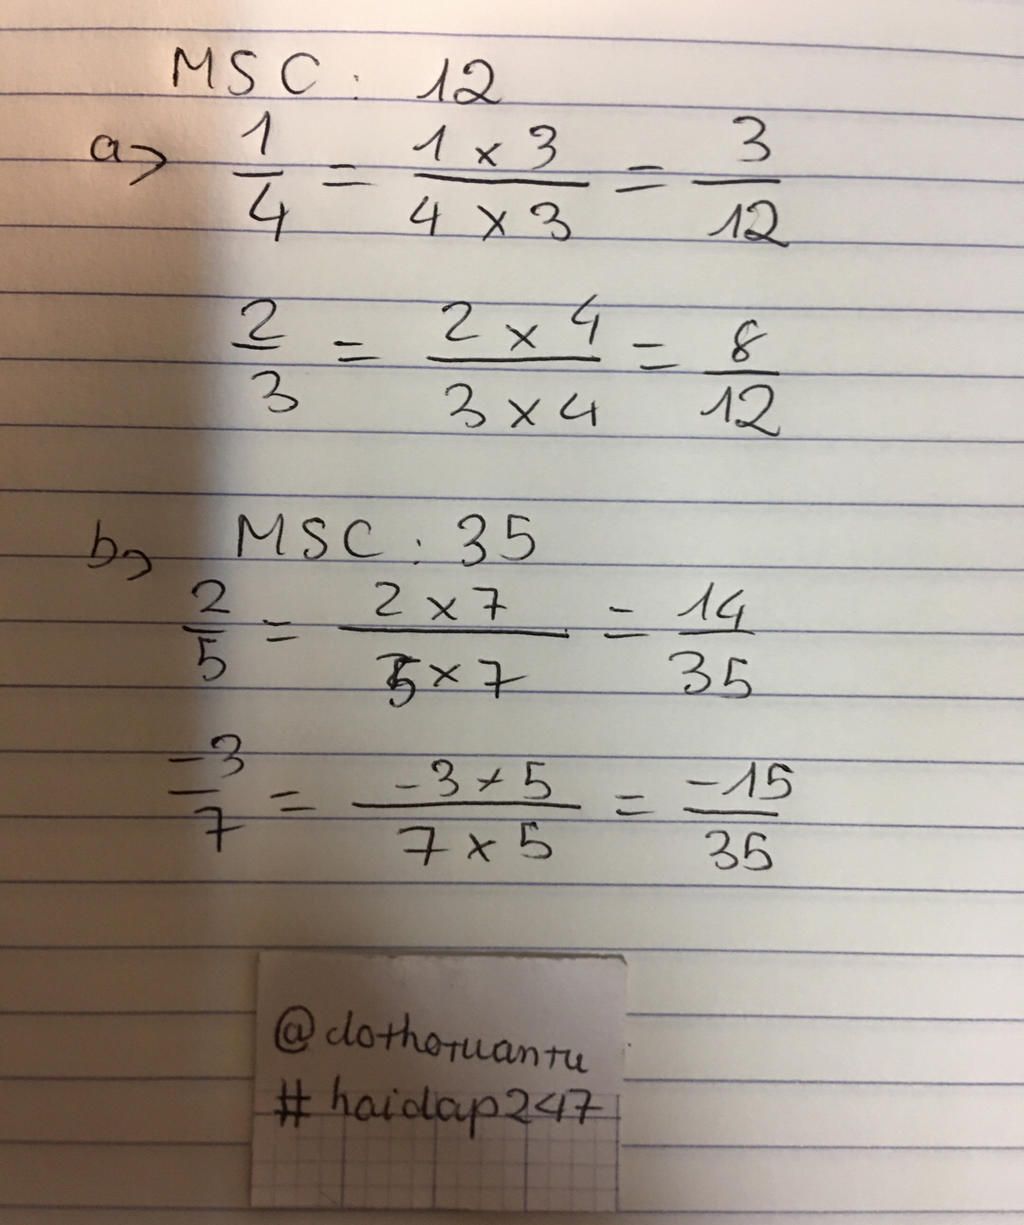 MSC : 12
a> 1/4 = (1 x 3)/(4 x 3) = 3/12
2/3 = (2 x 4)/(3 x 4) = 8/12
b> MSC : 35
2/5 = (2 x 7)/(5 x 7) = 14/35
-3/7 = (-3 x 5)/(7 x 5) = -15/35
@dothotuantu
# haidap247